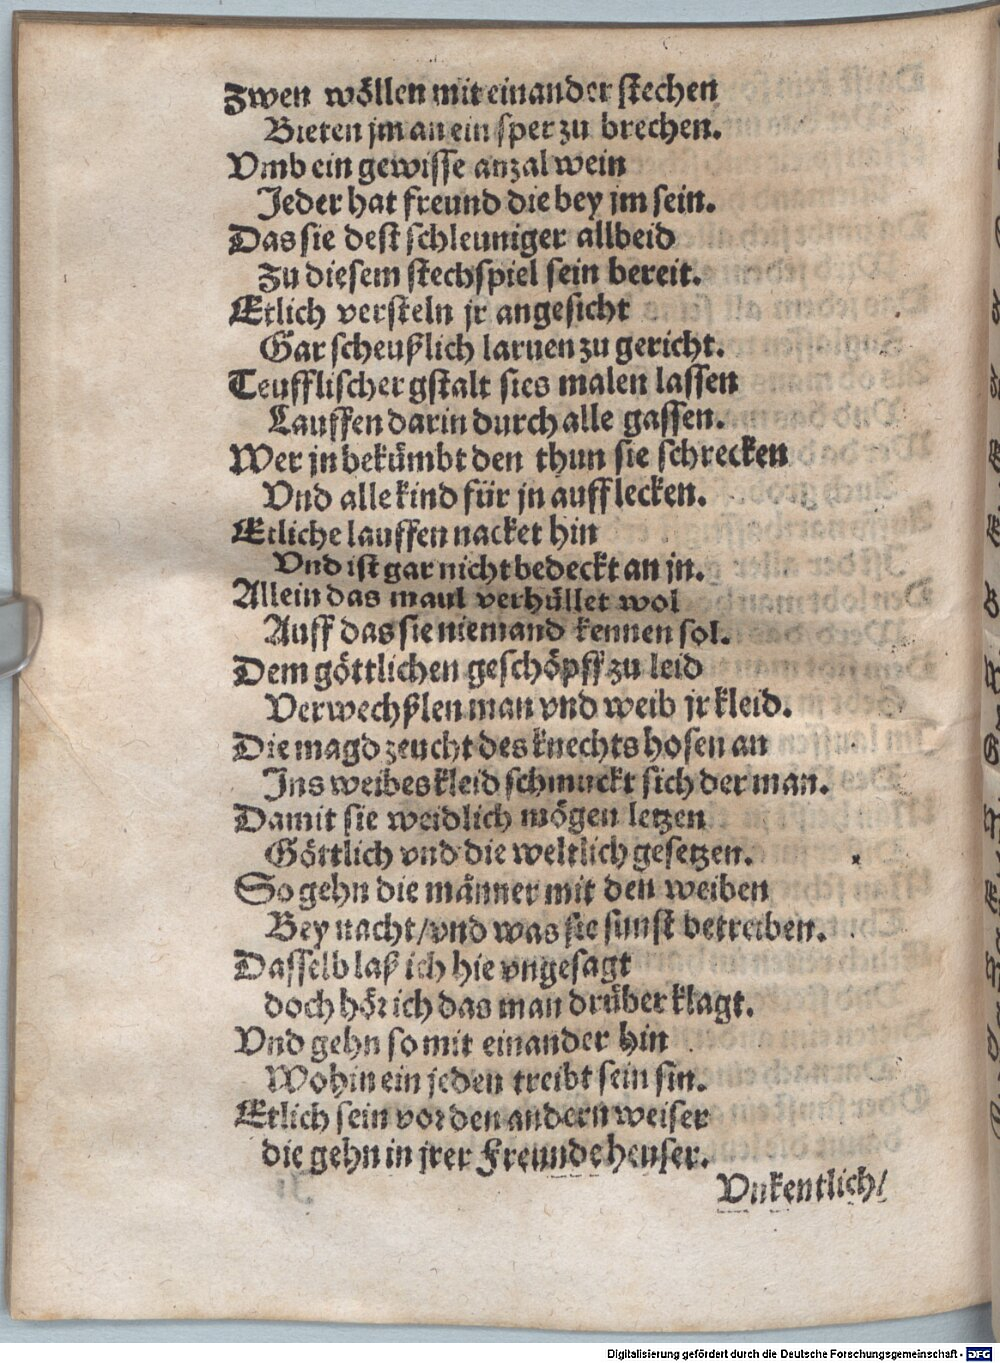 Zwen wöllen mit einander stechen
Bieten jm an ein sper zu brechen.
Vmb ein gewisse anzal wein
Jeder hat freund die bey jm sein.
Das sie dest schleuniger allbeid
Zu diesem stechspiel sein bereit.
Etlich versteln jr angesicht
Gar scheußlich laruen zu gericht.
Teufflischer gstalt sies malen lassen
Lauffen darin durch alle gassen.
Wer jn bekümbt den thun sie schrecken
Vnd alle kind für jn auff lecken.
Etliche lauffen nacket hin
Vnd ist gar nicht bedeckt an jn.
Allein das maul verhüllet wol
Auff das sie niemand kennen sol.
Dem göttlichen geschöpff zu leid
Verwechßlen man vnd weib jr kleid.
Die magd zeucht des knechts hosen an
Ins weibes kleid schmuckt sich der man.
Damit sie weidlich mögen letzen
Göttlich vnd die weltlich gesetzen.
So gehn die männer mit den weiben
Bey nacht/vnd was sie sunst betreiben.
Dasselb laß ich hie vngesagt
doch hör ich das man drüber klagt.
Vnd gehn so mit einander hin
Wohin ein jeden treibt sein sin.
Etlich sein vor den andern weiser
die gehn in jrer Freunde heuser.
Vnkentlich/
Digitalisierung gefördert durch die Deutsche Forschungsgemeinschaft - DFG